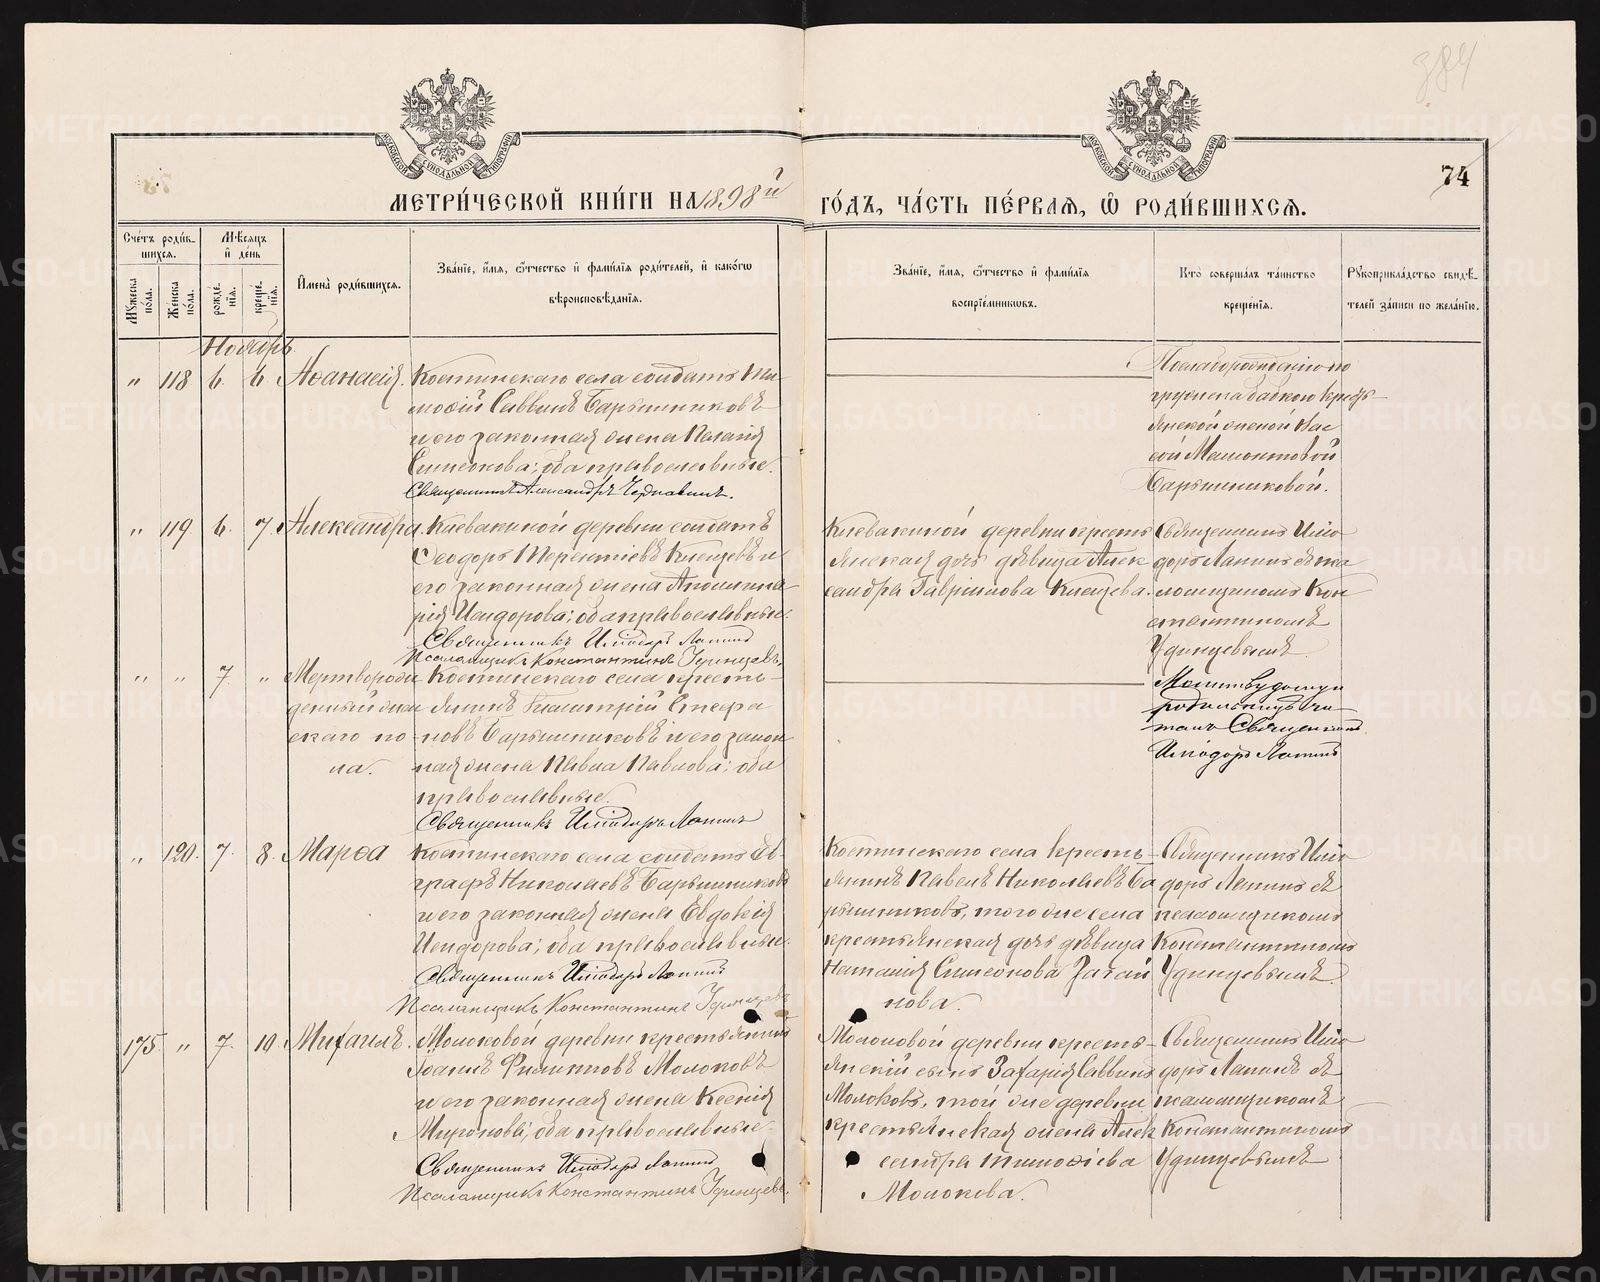 384
74
МЕТРИ́ЧЕСКОЙ КНИ́ГИ НА 1898й ГО́ДЪ, ЧА́СТЬ ПЕ́РВАЯ, Ѡ РОДИ́ВШИХСЯ.
Сче́тъ роди́в-
шихся.
Мѣ́сяцъ
и де́нь
Мꙋ́жеска
по́ла.
Же́нска
по́ла.
рожде́-
нїя.
креще́-
нїя.
И҆мена̀ роди́вшихся.
Зва́нїе, и҆́мя, ѻ҆́тчество и҆ фами́лїя роди́телей, и҆ како́гѡ
вѣроисповѣ́данїя.
Зва́нїе, и҆́мя, ѻ҆́тчество и҆ фами́лїя
воспрїе́мникѡвъ.
Кто̀ соверша́лъ та́инство
креще́нїя.
Рꙋкоприкла́дство свидѣ́-
телей за́писи по жела́нїю.
Ноябрь
" 118 6. 6. Аѳанасія.
Костинскаго села солдатъ Ти-
моѳій Саввинъ Барышниковъ
и его законная жена Пелагія
Симеонова; оба православные.
Священникъ Александръ Чернавинъ.
По слаборождению по
гружена бабкою кресть-
янской женой Вас
сой Мамонтовой
Барышниковой.
" 119 6. 7. Александра.
Клевакиной деревни солдатъ
Ѳеодоръ Терентіевъ Клещевъ и
его законная жена Аполлина-
рія Исидорова; оба православные.
Священникъ Илиодоръ Лапинъ
Псаломщикъ Константинъ Удинцевъ.
Клевакиной деревни кресть
янская дочь дѣвица Алек
сандра Гавріилова Клещева.
Священникъ Иліо
доръ Лапинъ съ пса
ломщикомъ Кон
стантиномъ
Удинцевымъ.
" " 7. "
Мертворож
денный жен
скаго по
ла.
Костинскаго села кресть-
янинъ Димитрій Стефа
новъ Барышниковъ и его закон
ная жена Павла Павлова; оба
православные.
Священникъ Илиодоръ Лапинъ
Молитву
родильницѣ чи-
талъ Священникъ
Илиодоръ Лапинъ
" 120. 7. 8. Марѳа
Костинскаго села солдатъ Ев-
графъ Николаевъ Барышниковъ
и его законная жена Евдокія
Исидорова; оба православные.
Священникъ Илиодоръ Лапинъ
Псаломщикъ Константинъ Удинцевъ
Костинскаго села кресть-
янинъ Павелъ Николаевъ Ба
рышниковъ, того же села
крестьянская дочь дѣвица
Наталія Симеонова Загай
нова.
Священникъ Иліо
доръ Лапинъ съ
псаломщикомъ
Константиномъ
Удинцевымъ.
175. " 7. 10. Михаилъ.
Молоковой деревни крестьянинъ
Іоаннъ Филипповъ Молоковъ
и его законная жена Ксенія
Миронова; оба православные.
Священникъ Илиодоръ Лапинъ
Псаломщикъ Константинъ Удинцевъ.
Молоковой деревни кресть-
янскій сынъ Захарія Саввинъ
Молоковъ, той же деревни
крестьянская жена Алек
сандра Тимоѳіева
Молокова.
Священникъ Иліо
доръ Лапинъ съ
псаломщикомъ
Константиномъ
Удинцевымъ
METRIKI.GASO-URAL.RU